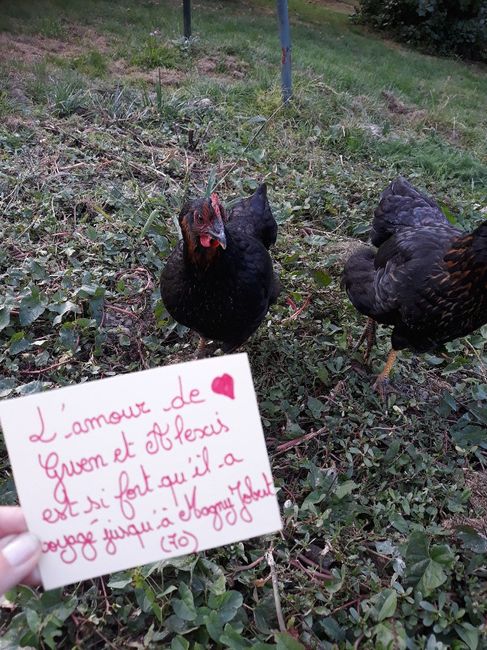 L'amour de ♥
Gwen et Alexis
est si fort qu'il a
voyagé jusqu'à Magny Jobert
(70)